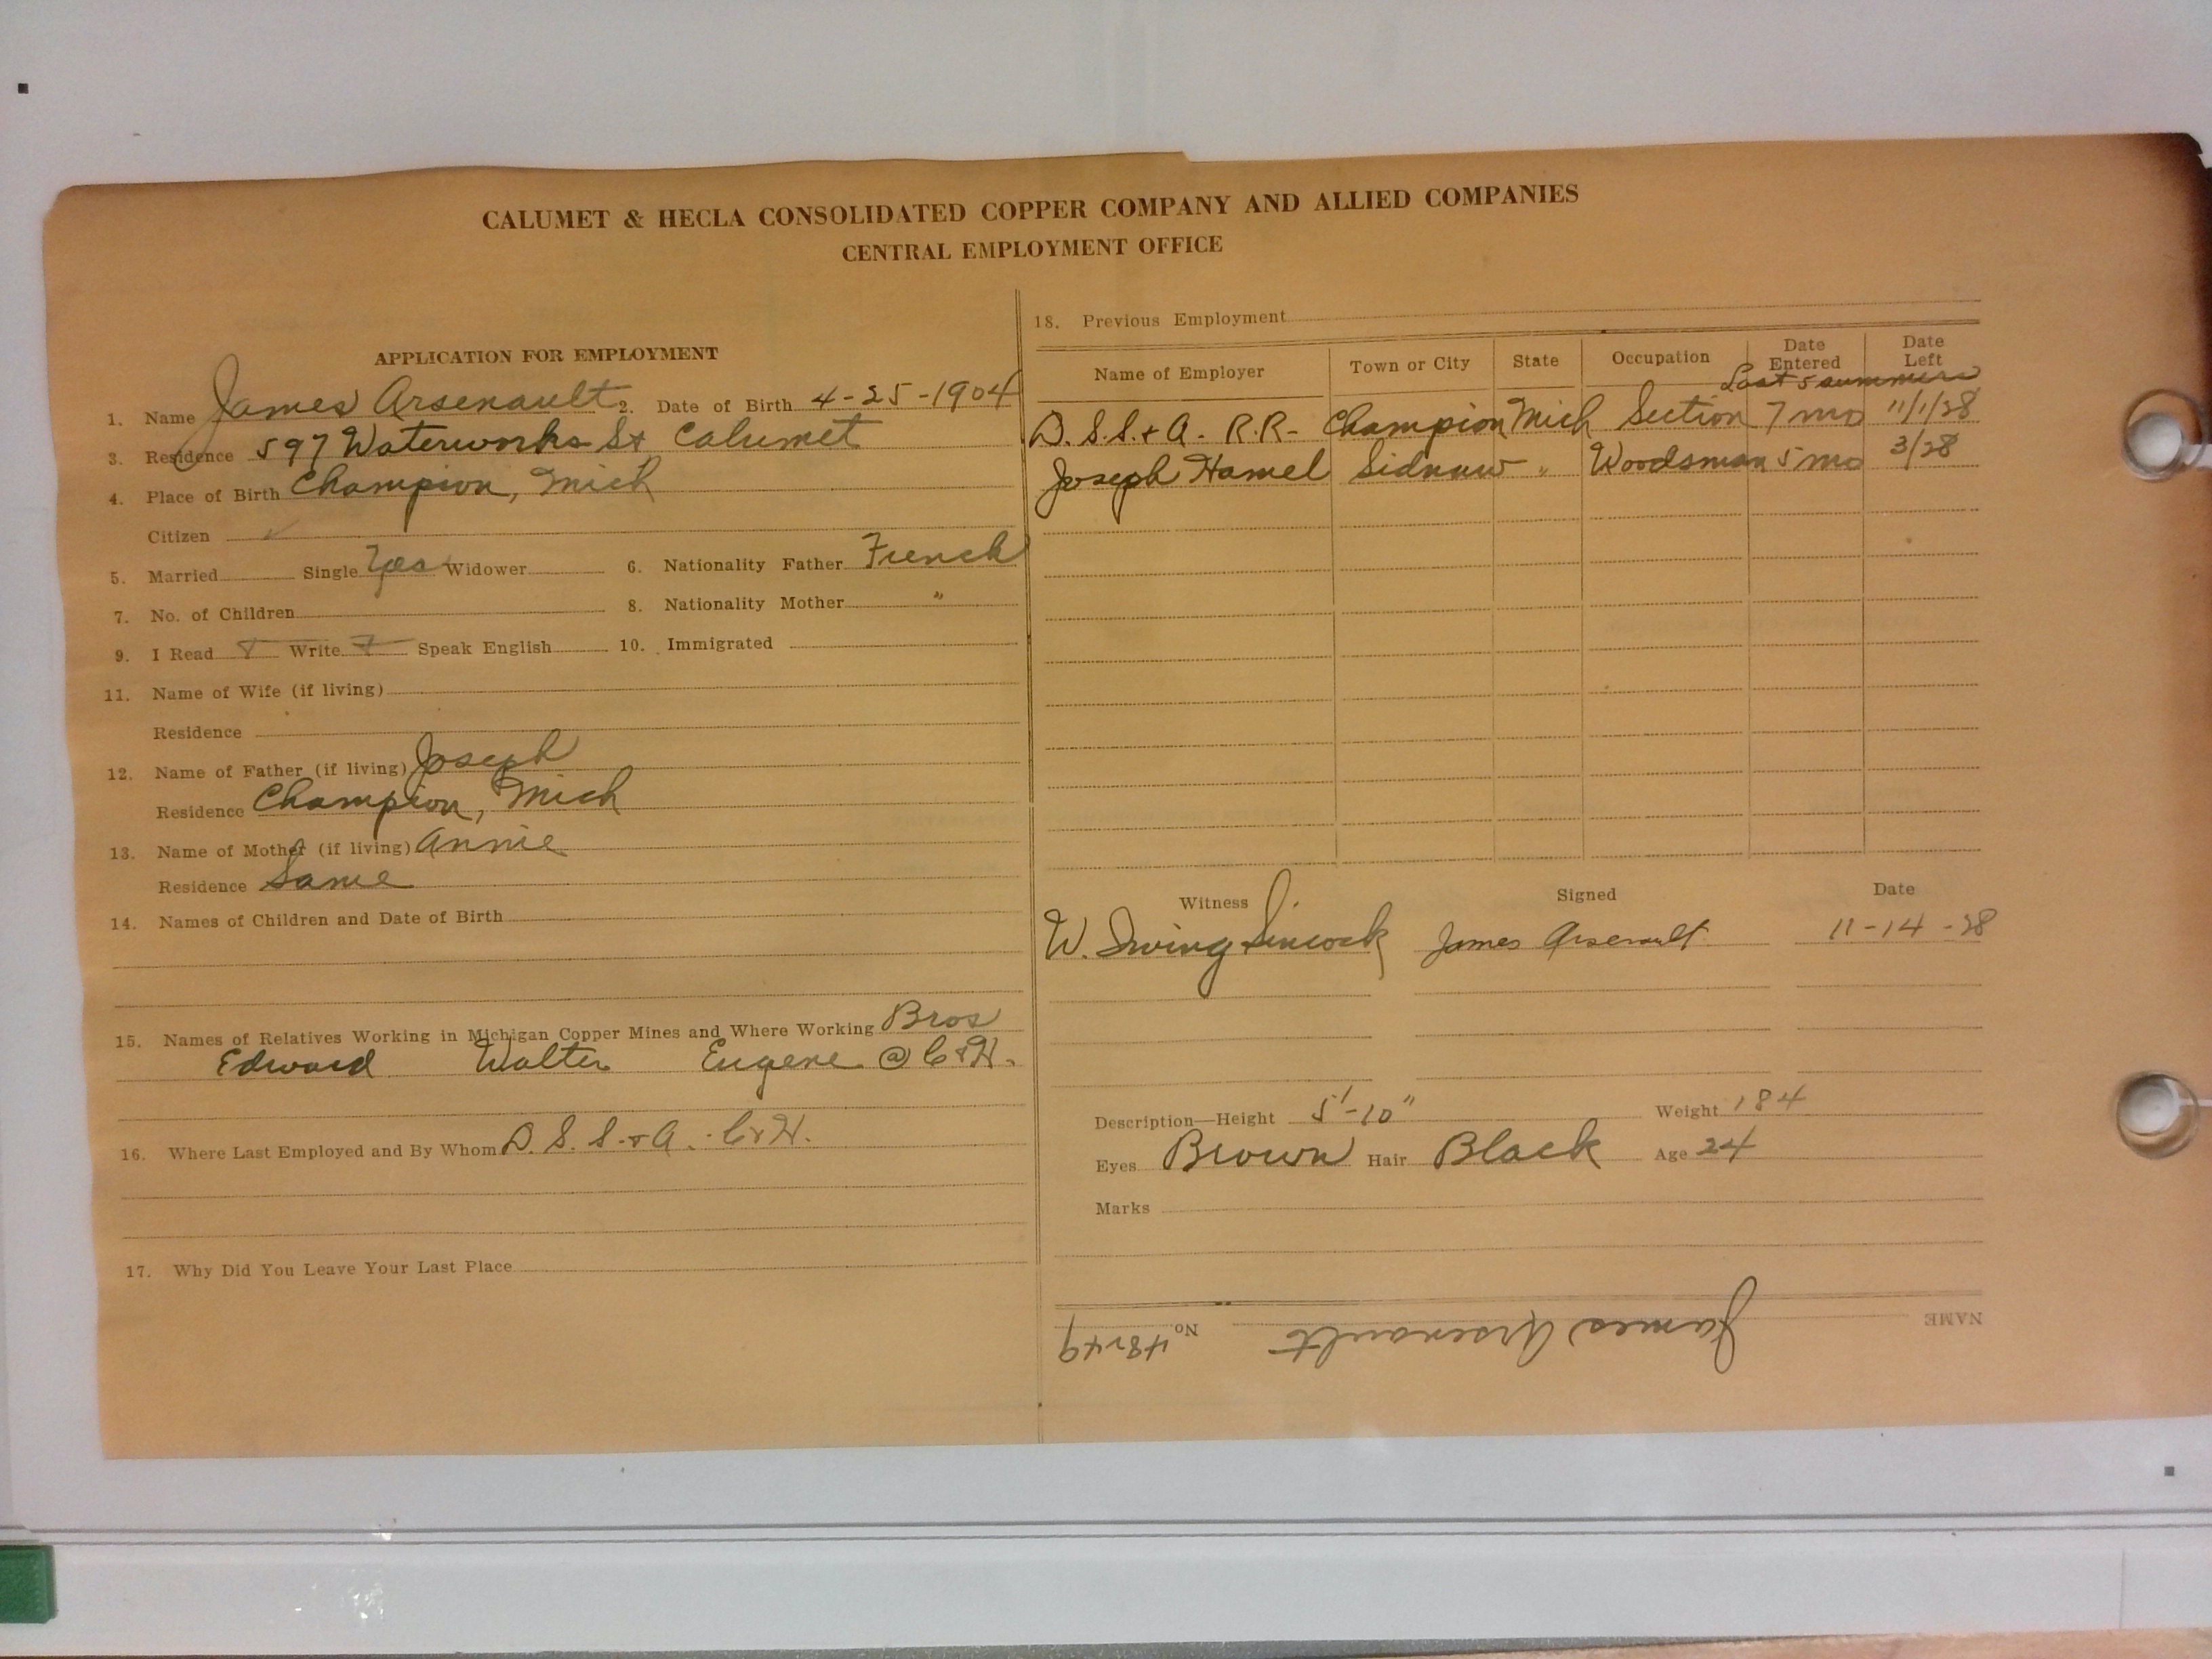 CALUMET & HECLA CONSOLIDATED COPPER COMPANY AND ALLIED COMPANIES
CENTRAL EMPLOYMENT OFFICE
APPLICATION FOR EMPLOYMENT
1. Name James Arsenault 2. Date of Birth 4-25-1904
3. Residence 597 Waterworks St Calumet
4. Place of Birth Champion, Mich
Citizen ✓
5. Married Single Yes Widower 6. Nationality Father French
7. No. of Children 8. Nationality Mother "
9. I Read Write Speak English 10. Immigrated
11. Name of Wife (if living)
Residence
12. Name of Father (if living) Joseph
Residence Champion, Mich
13. Name of Mother (if living) Annie
Residence Same
14. Names of Children and Date of Birth
15. Names of Relatives Working in Michigan Copper Mines and Where Working Bros
Edward Walter Eugene @ C&H.
16. Where Last Employed and By Whom D. S. S. & A. - C&H.
17. Why Did You Leave Your Last Place
18. Previous Employment
Name of Employer Town or City State Occupation Date Entered Date Left
Last 5 summers
D. S. S. & A. R.R- Champion Mich Section 7 mo 11/1/28
Joseph Hamel Sidnaw " Woodsman 5 mo 3/28
Witness Signed Date
W. Irving Sincock James Arsenault 11-14-28
Description—Height 5'-10" Weight 184
Eyes Brown Hair Black Age 24
Marks
NAME James Arsenault No. 48249